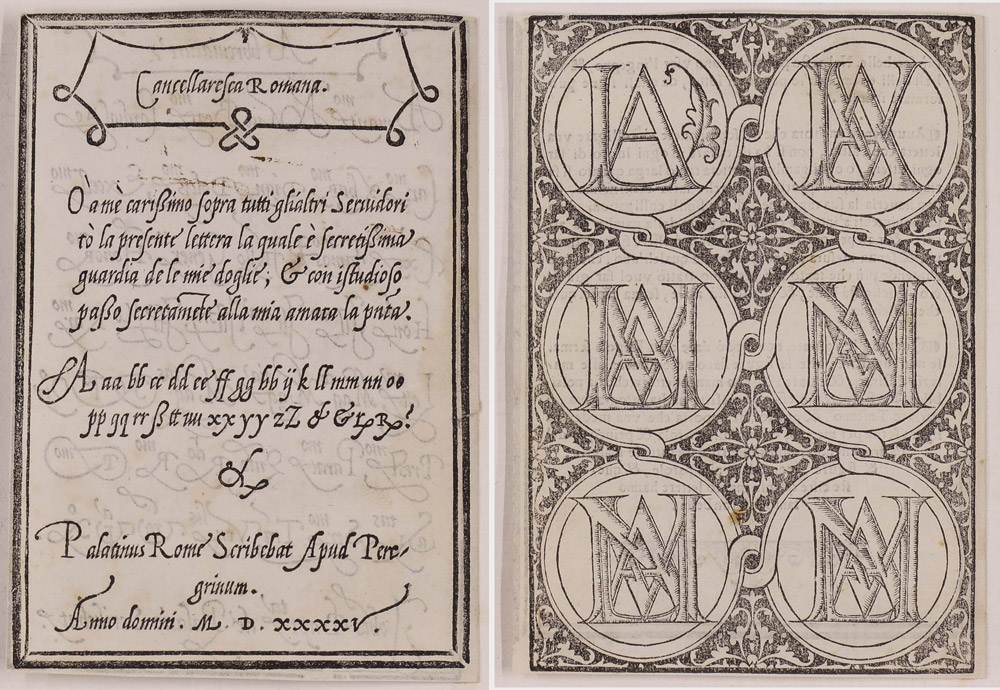 Cancellaresca Romana.
O a mè carißimo sopra tutti glialtri Seruidori
tò la presente lettera la quale è secretißima
guardia de le mie doglie; & con istudioso
paßo secretamēte alla mia amata la pnta.
A aa bb cc dd ee ff gg hh ij k ll mm nn oo
pp qq rr ß tt uu xx yy zZ & &
&
Palatinus Rome Scribebat Apud Pere-
grinum.
Anno domini. M. D. XXXXV.